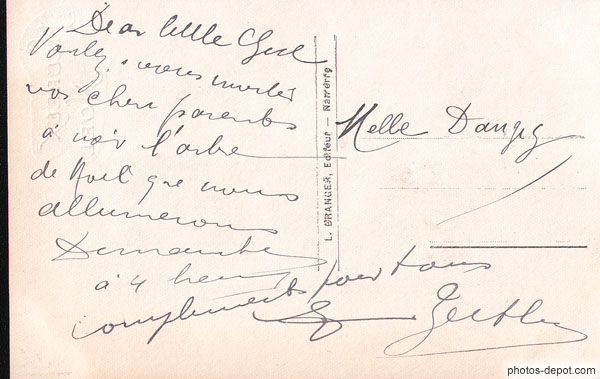 Dear little Girl
Voulez vous inviter
vos chers parents
à voir l'arbre
de Noël que nous
allumerons
Dimanche
à 4 heures
compliments pour tous
L. BRANGER, Editeur — Nanterre
Melle
photos-depot.com